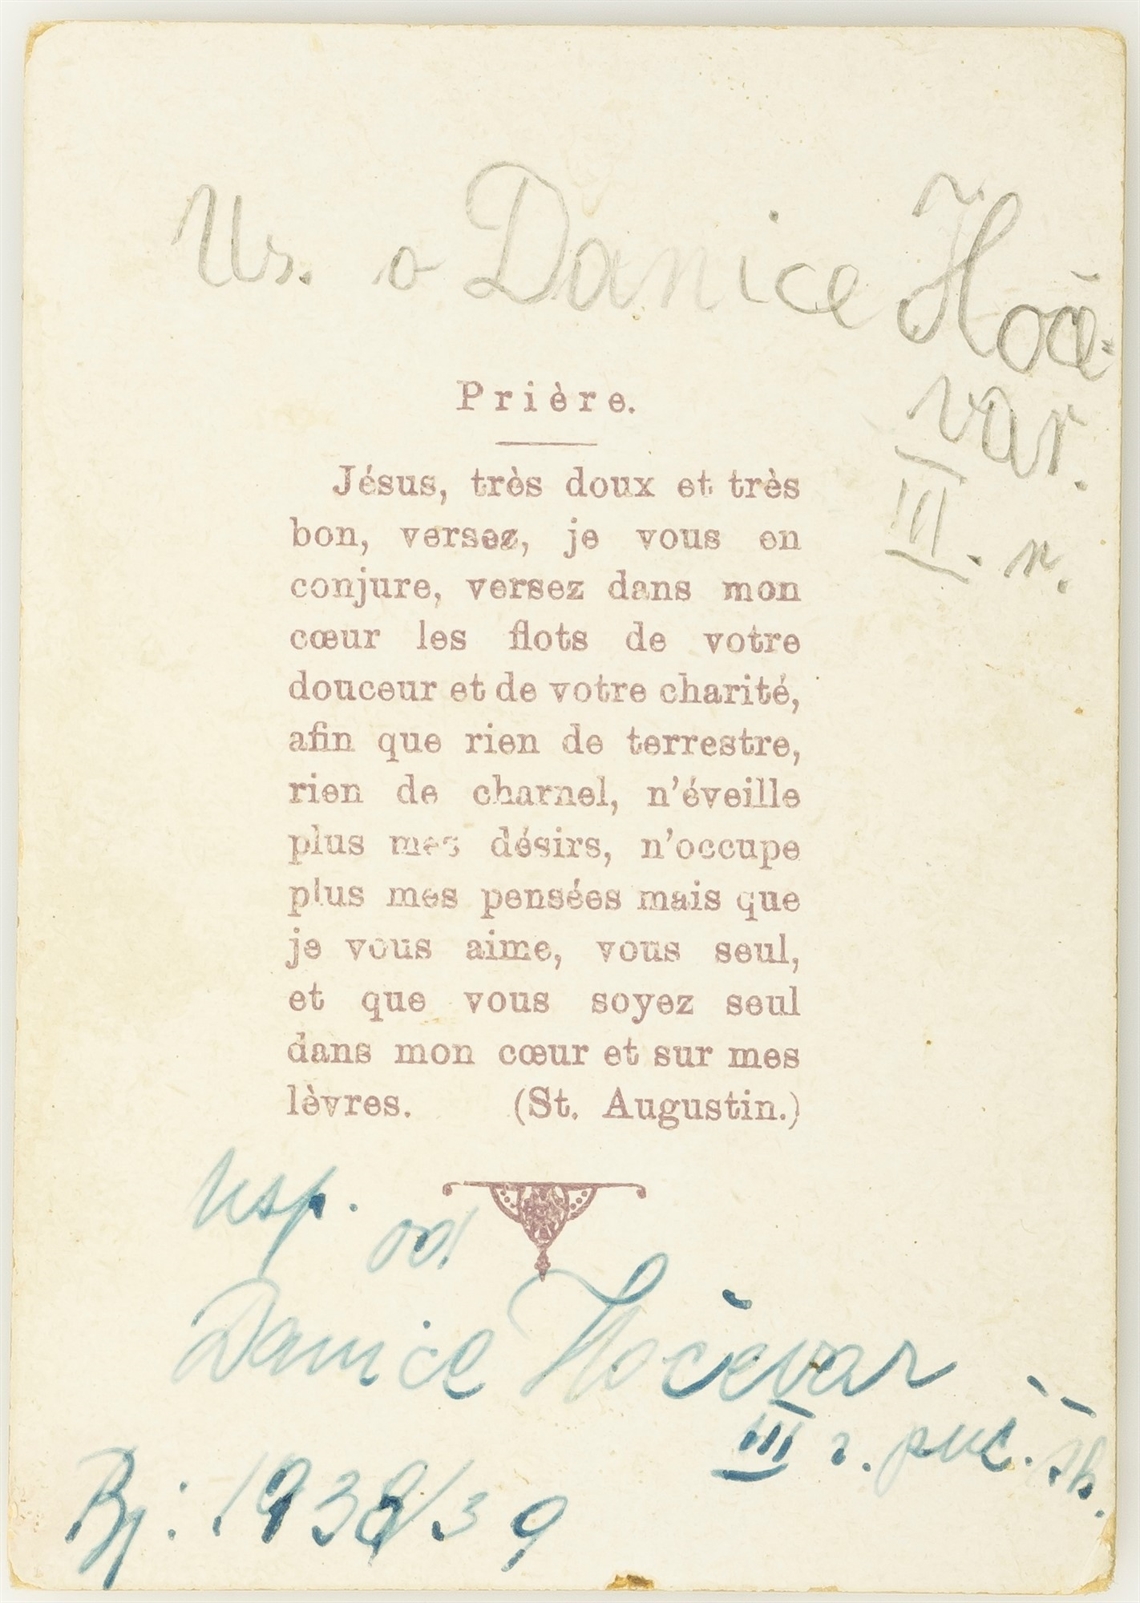 Us. o Danice Hoče-
var.
III. r.
Prière.
Jésus, très doux et très
bon, versez, je vous en
conjure, versez dans mon
cœur les flots de votre
douceur et de votre charité,
afin que rien de terrestre,
rien de charnel, n'éveille
plus mes désirs, n'occupe
plus mes pensées mais que
je vous aime, vous seul,
et que vous soyez seul
dans mon cœur et sur mes
lèvres. (St. Augustin.)
Usp. od
Danice Hočevar
III r. puč. šk.
Bj: 1938/39